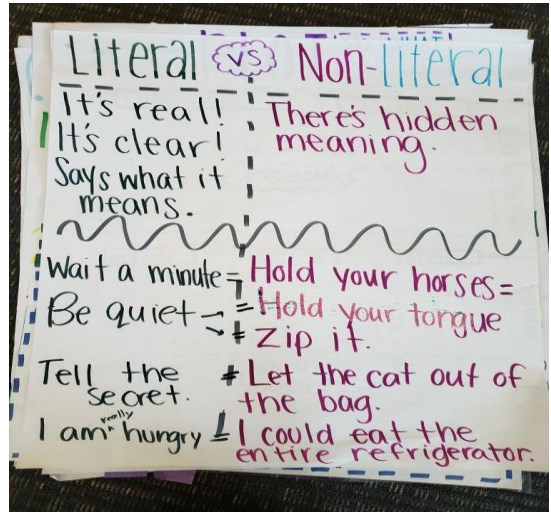 Literal vs Non-Literal
It's real!
It's clear!
Says what it
means.
There's hidden
meaning.
Wait a minute = Hold your horses =
Be quiet → = Hold your tongue
→ = Zip it.
Tell the
secret.
= Let the cat out of
the bag.
I am really hungry = I could eat the
entire refrigerator.